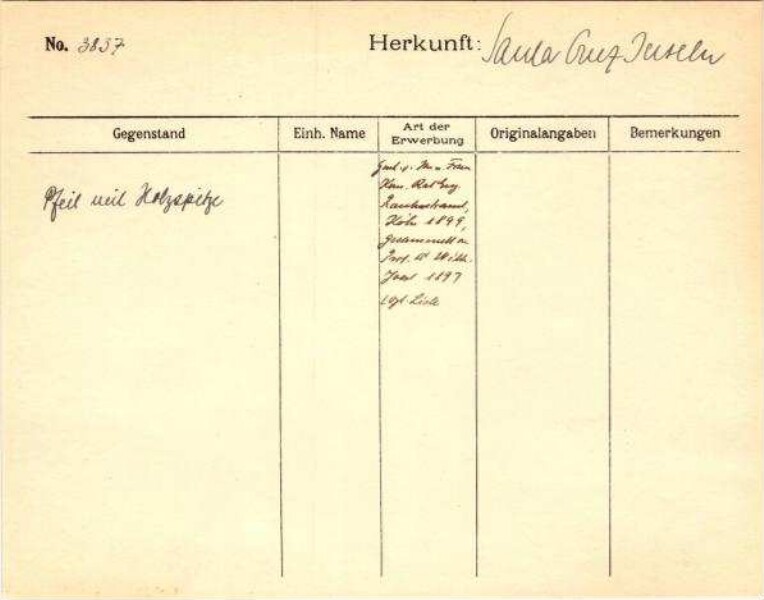 No. 3837
Herkunft: Santa Cruz Inseln
Gegenstand
Einh. Name
Art der
Erwerbung
Originalangaben
Bemerkungen
Pfeil mit Holzspitze
Gesch. v. H. u. Frau
Rautenstrauch,
Köln 1899,
gesammelt v.
Prof. Dr Wilh.
Joest 1897
vgl. Liste